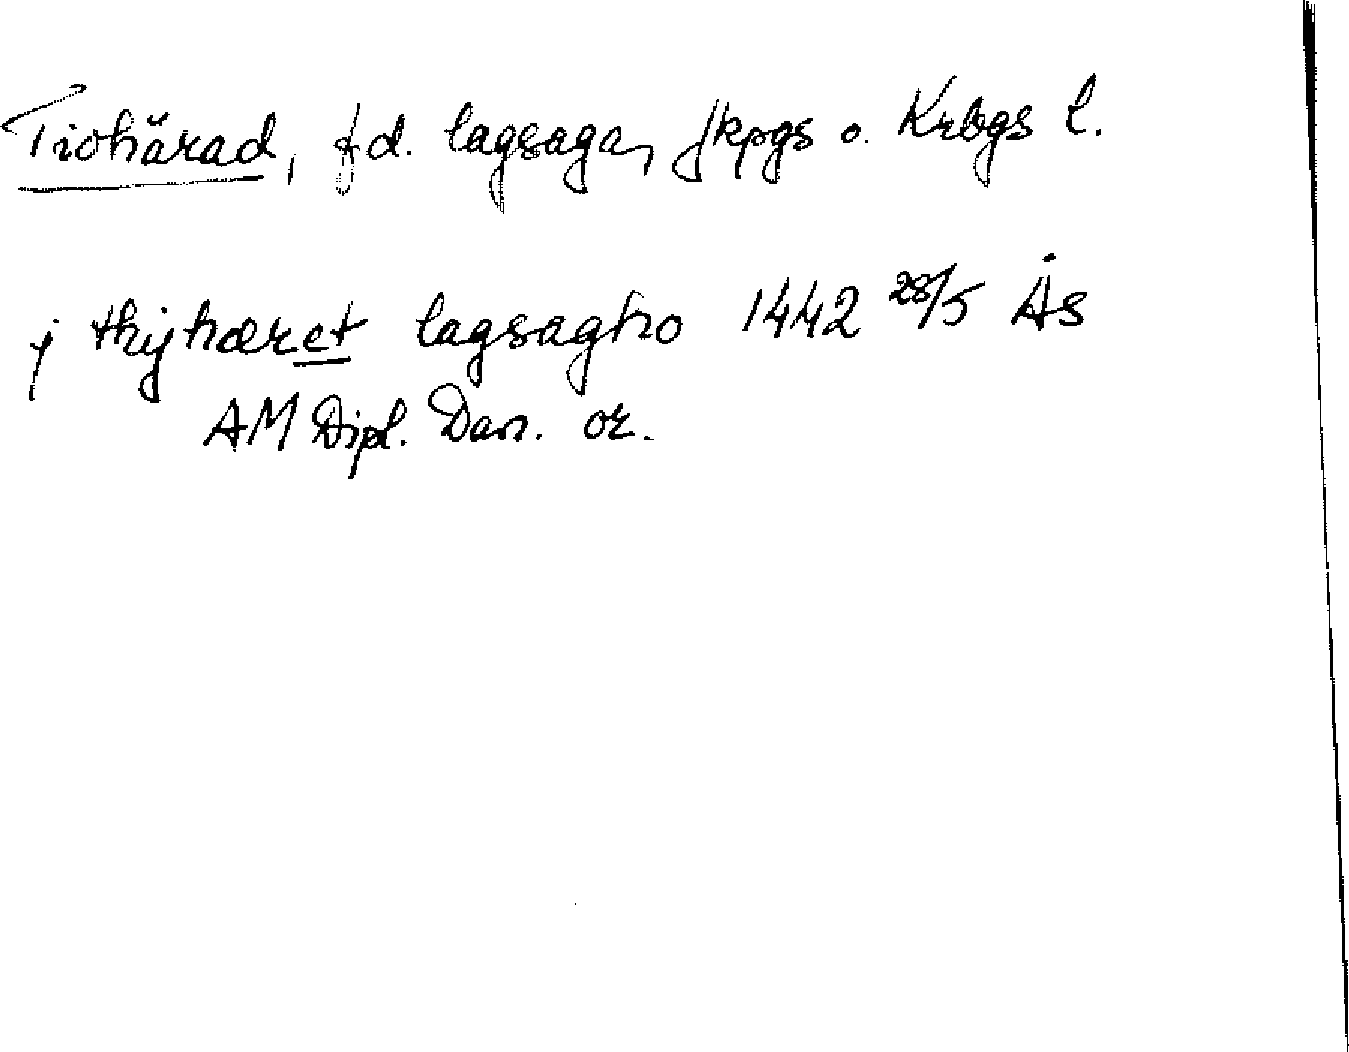 Tiohärad, f d. lagsaga, Jkpgs o. Krbgs l.
j thijhæret lagsagho 1442 28/5 Ås
AM Dipl. Dan. or.